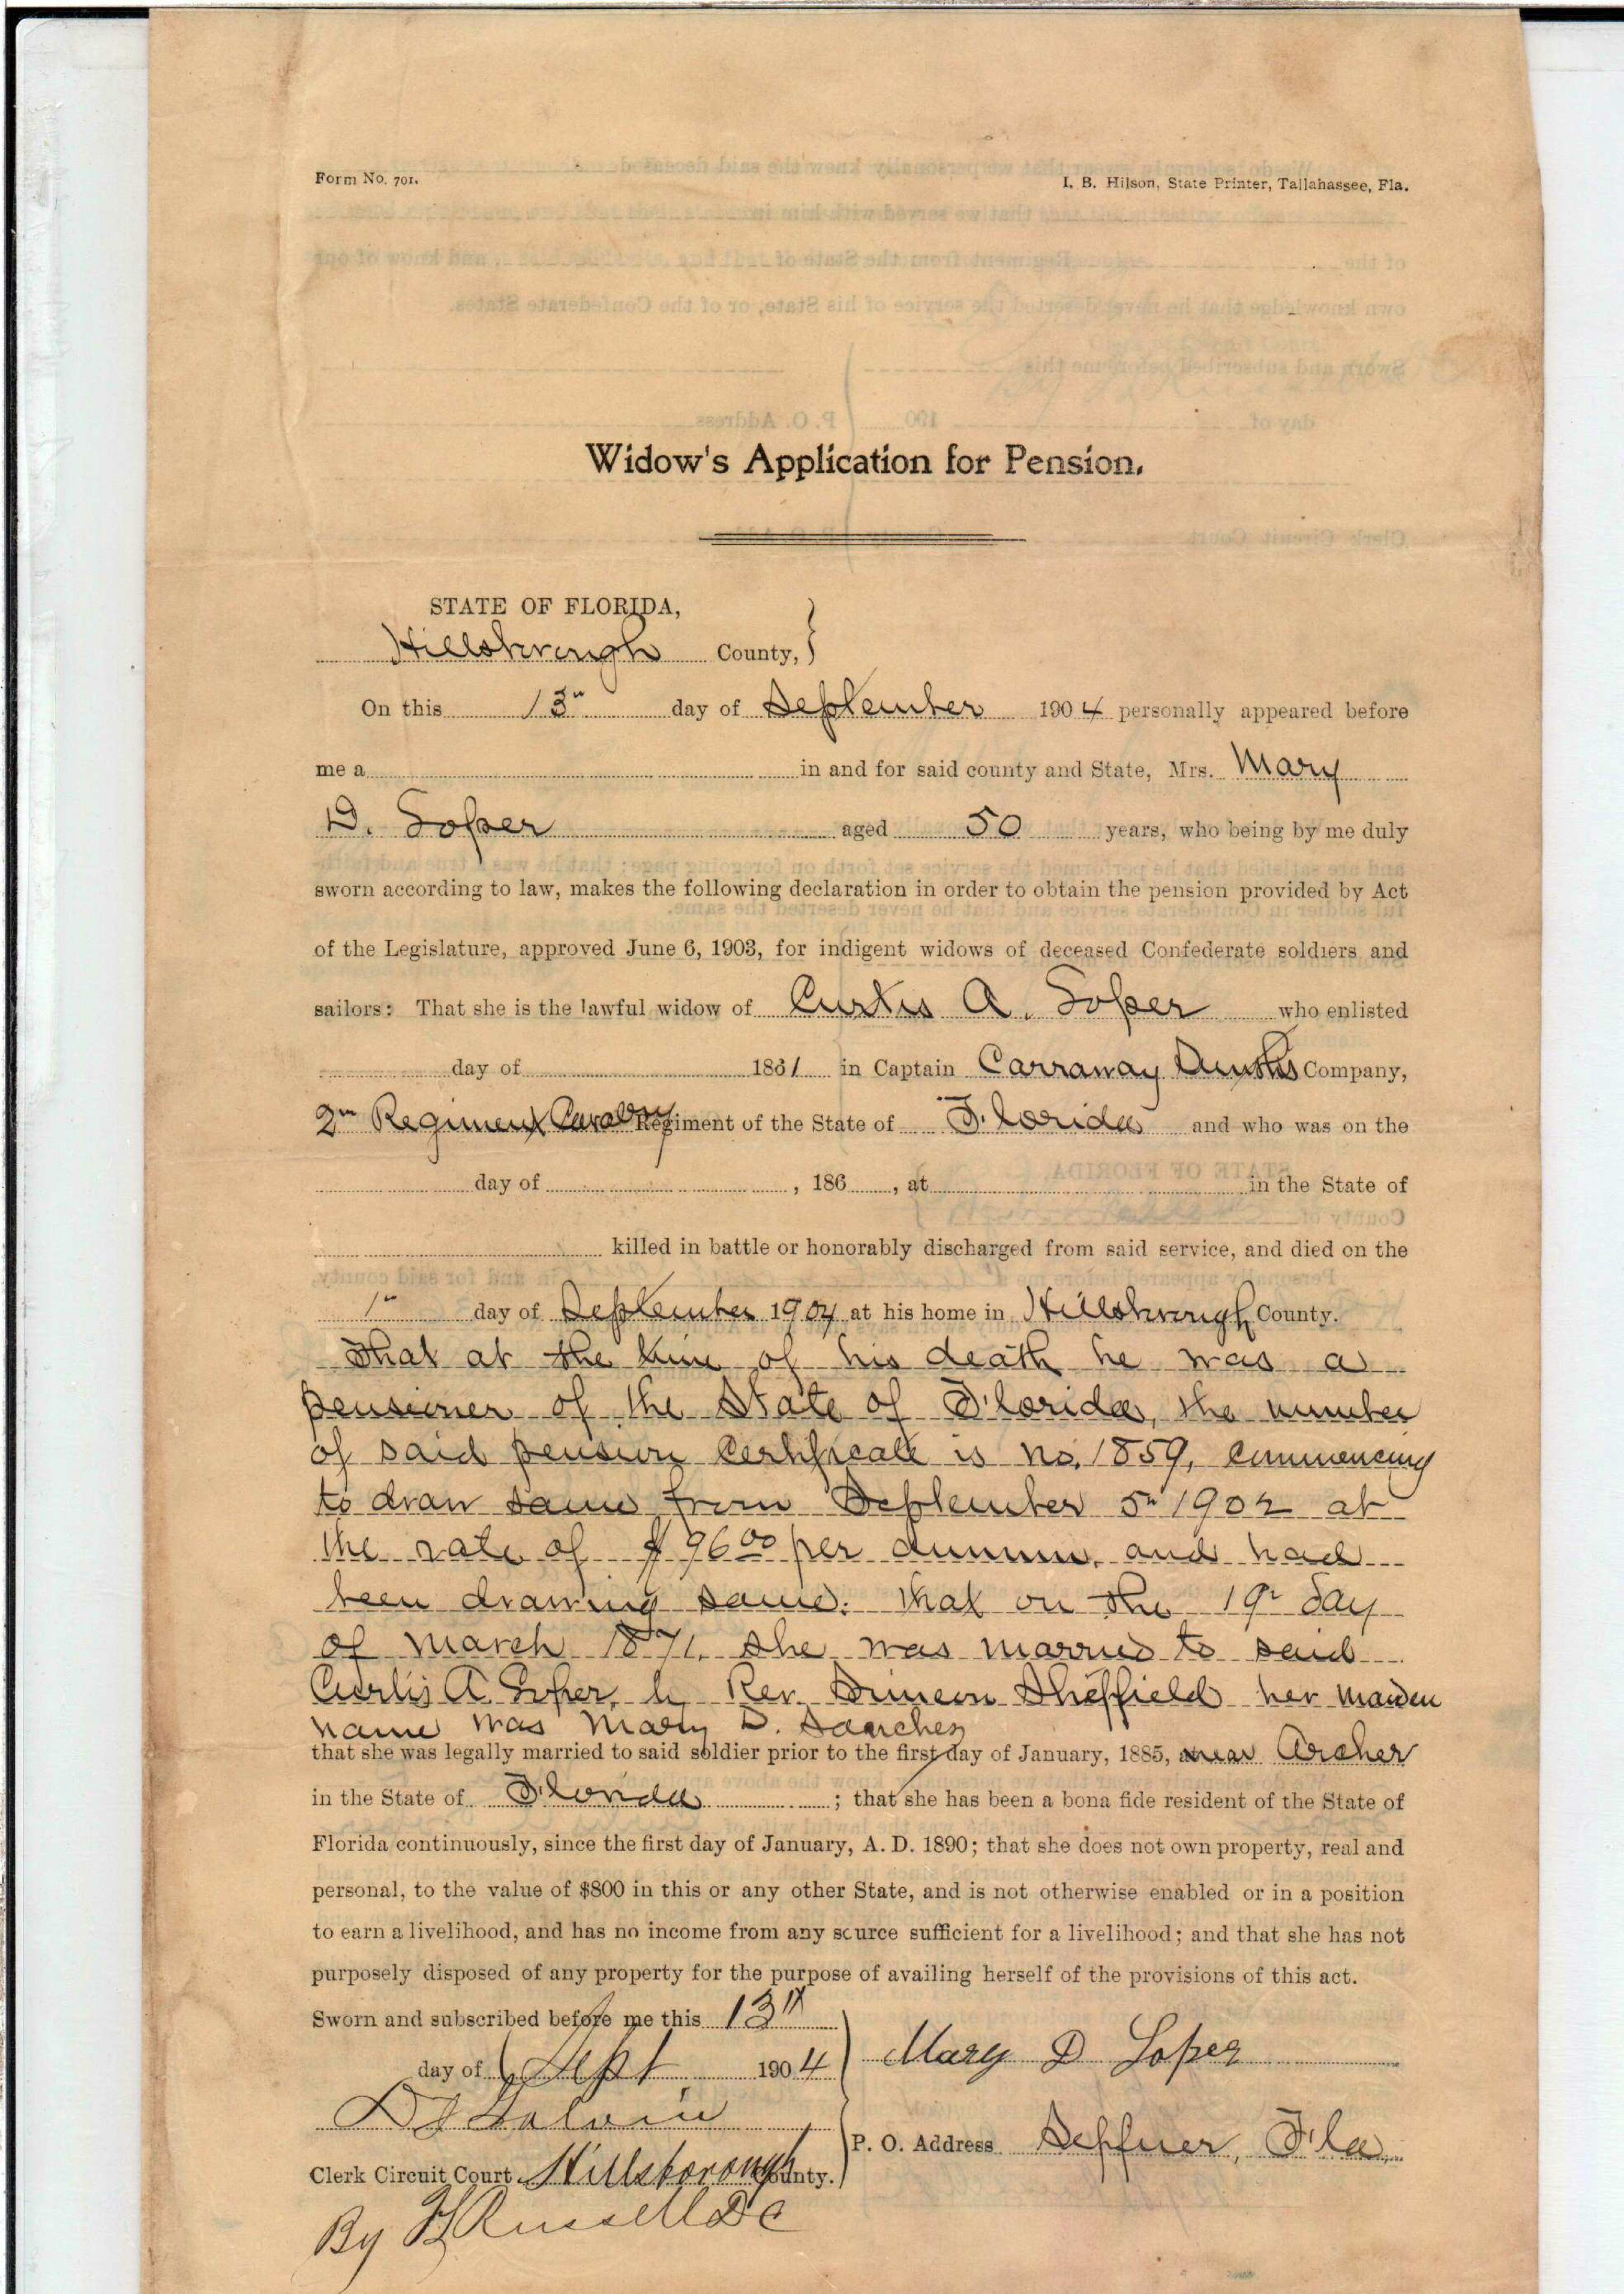 Form No. 701.
I. B. Hilson, State Printer, Tallahassee, Fla.
Widow's Application for Pension.
STATE OF FLORIDA,
Hillsborough County,
On this 13" day of September 1904 personally appeared before
me a in and for said county and State, Mrs. Mary
D. Soper aged 50 years, who being by me duly
sworn according to law, makes the following declaration in order to obtain the pension provided by Act
of the Legislature, approved June 6, 1903, for indigent widows of deceased Confederate soldiers and
sailors: That she is the lawful widow of Curtis A. Soper who enlisted
day of 1861 in Captain Carraway Company,
2" Regiment Cavalry Regiment of the State of Florida and who was on the
day of , 186 , at in the State of
killed in battle or honorably discharged from said service, and died on the
1" day of September 1904 at his home in Hillsborough County.
That at the time of his death he was a
pensioner of the State of Florida, the number
of said pension certificate is No. 1859, commencing
to draw same from September 5" 1902 at
the rate of $96 00 per annum, and had
been drawing same. That on the 19" day
of March 1871, she was married to said
Curtis A Soper, by Rev. Simeon Sheffield her maiden
name was Mary D. Sanchez
that she was legally married to said soldier prior to the first day of January, 1885, near Archer
in the State of Florida ; that she has been a bona fide resident of the State of
Florida continuously, since the first day of January, A. D. 1890; that she does not own property, real and
personal, to the value of $800 in this or any other State, and is not otherwise enabled or in a position
to earn a livelihood, and has no income from any source sufficient for a livelihood; and that she has not
purposely disposed of any property for the purpose of availing herself of the provisions of this act.
Sworn and subscribed before me this 13th
day of Sept 1904
Mary D Soper
P. O. Address Seffner, Fla.
Clerk Circuit Court Hillsborough County.
By Russell DC